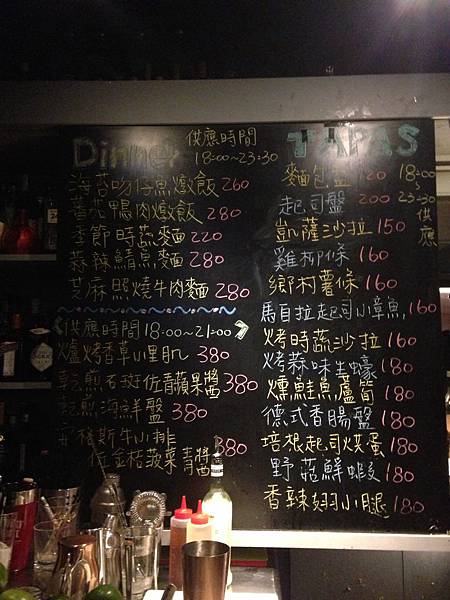 Dinner 供應時間
18:00~23:30
海苔吻仔魚燉飯 260
蕃茄鴨肉燉飯 280
季節時蔬麵 220
蒜辣鯖魚麵 280
芝麻照燒牛肉麵 280
<供應時間18:00~21:00>
爐烤香草小里肌 380
煎石斑佐青蘋果醬 380
煎海鮮盤 380
斯牛小排
佐金桔菠菜青醬 380
TAPAS
麵包盤 120
起司盤 200
18:00~23:30供應
凱薩沙拉 150
雞柳條 160
鄉村薯條 160
馬自拉起司小章魚 160
烤時蔬沙拉 160
烤蒜味生蠔 180
燻鮭魚蘆筍 180
德式香腸盤 180
培根起司烘蛋 180
野菇鮮蝦 180
香辣翅小腿 180